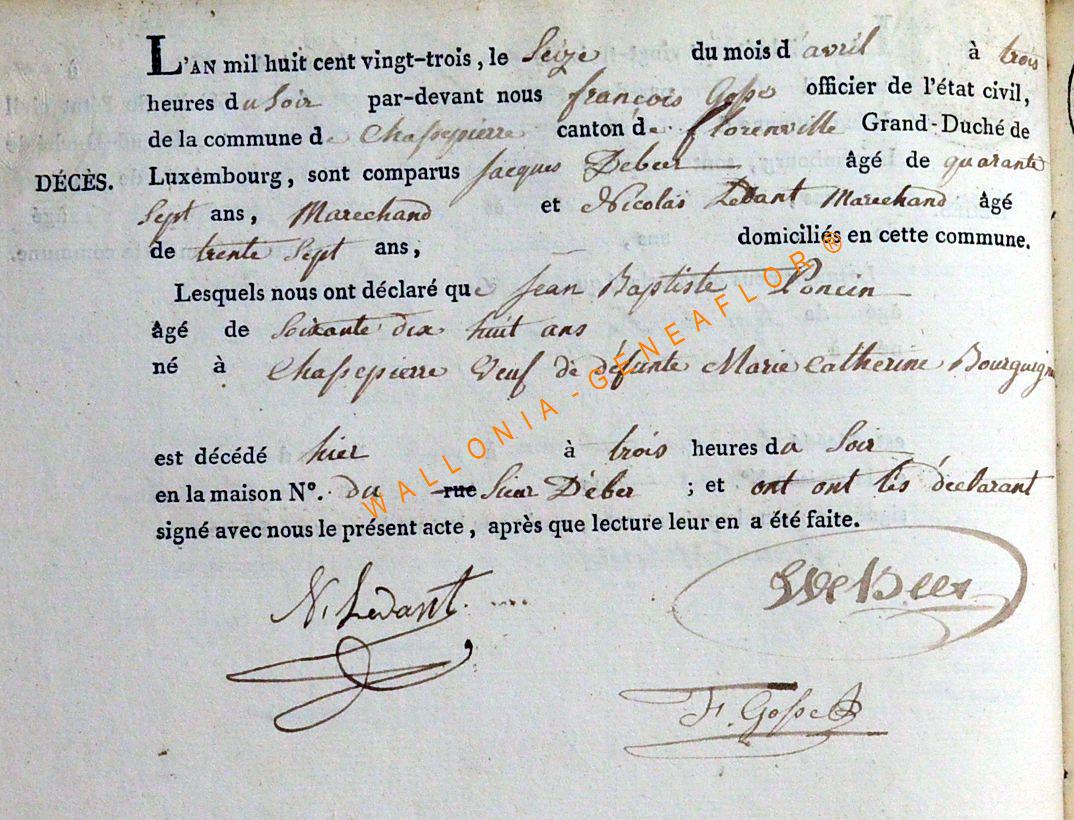 L'AN mil huit cent vingt-trois, le Seize du mois d avril à trois
heures du Soir par-devant nous françois Gosse officier de l'état civil,
de la commune de Chassepierre canton de florenville Grand-Duché de
DÉCÈS. Luxembourg, sont comparus jacques Debeer âgé de quarante
Sept ans, Marechand et Nicolas Ledant Marechand âgé
de trente Sept ans, domiciliés en cette commune.
Lesquels nous ont déclaré que jean Baptiste Poncin
âgé de Soixante dix huit ans
né à Chassepierre Veuf de défunte Marie Catherine Bourguign
est décédé hier à trois heures du Soir
en la maison N°. du rue Sieur Déber ; et ont ont les déclarant
signé avec nous le présent acte, après que lecture leur en a été faite.
N. Ledant.
DeBeer
F. Gosse
WALLONIA - GENEAFLOR ®